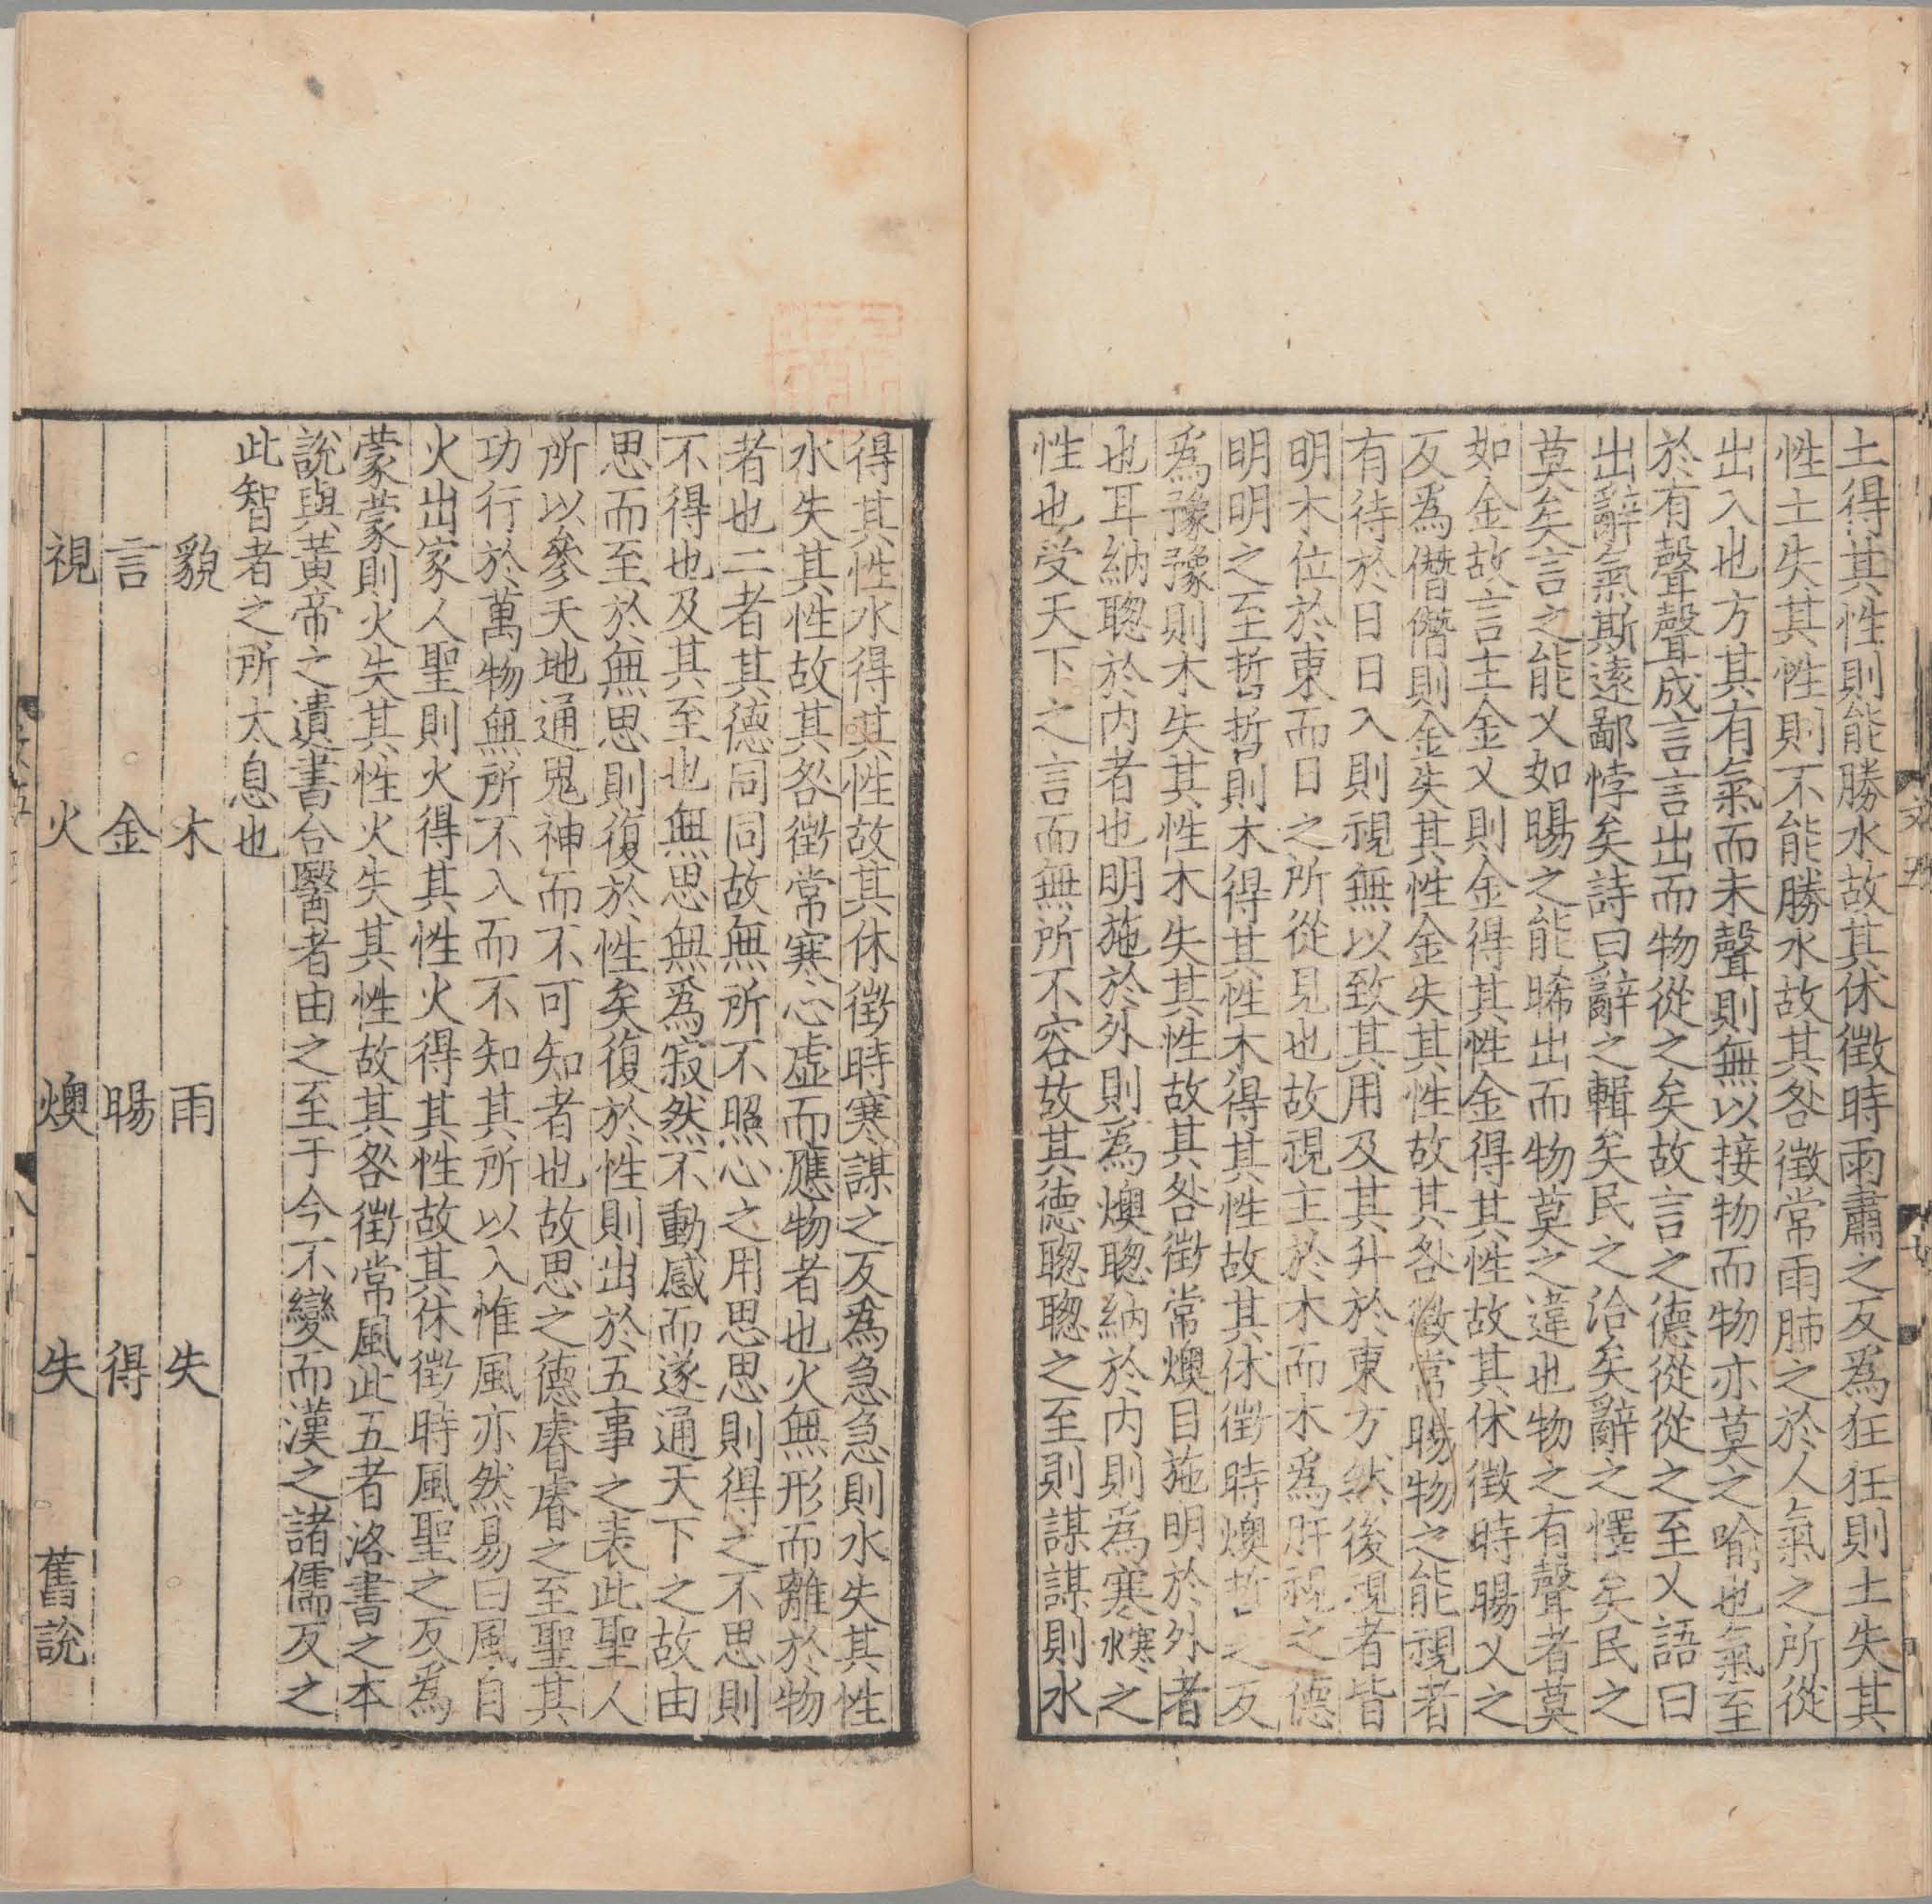 土得其性則能勝水故其休徵時雨肅之反爲狂狂則土失其
性土失其性則不能勝水故其咎徵常雨肺之於人氣之所從
出入也方其有氣而未聲則無以接物而物亦莫之喻也氣至
於有聲聲成言言出而物從之矣故言之德從從之至乂語曰
出辭氣斯遠鄙悖矣詩曰辭之輯矣民之洽矣辭之懌矣民之
莫矣言之能乂如暘之能晞出而物莫之違也物之有聲者莫
如金故言主金乂則金得其性金得其性故其休徵時暘乂之
反爲僭僭則金失其性金失其性故其咎徵常暘物之能視者
有待於日日入則視無以致其用及其升於東方然後視者皆
明木位於東而日之所從見也故視主於木而木爲肝視之德
明明之至哲哲則木得其性木得其性故其休徵時燠哲之反
爲豫豫則木失其性木失其性故其咎徵常燠目施明於外者
也耳納聰於内者也明施於外則爲燠聰納於内則爲寒水寒之
性也受天下之言而無所不容故其德聰聰之至則謀謀則水
得其性水得其性故其休徵時寒謀之反爲急急則水失其性
水失其性故其咎徵常寒心虛而應物者也火無形而離於物
者也二者其德同同故無所不照心之用思思則得之不思則
不得也及其至也無思無爲寂然不動感而遂通天下之故由
思而至於無思則復於性矣復於性則出於五事之表此聖人
所以參天地通鬼神而不可知者也故思之德睿睿之至聖其
功行於萬物無所不入而不知其所以入惟風亦然易曰風自
火出家人聖則火得其性火得其性故其休徵時風聖之反爲
蒙蒙則火失其性火失其性故其咎徵常風此五者洛書之本
說與黃帝之遺書合醫者由之至于今不變而漢之諸儒反之
此智者之所太息也
貌 木 雨 失
言 金 暘 得
視 火 燠 失 舊説